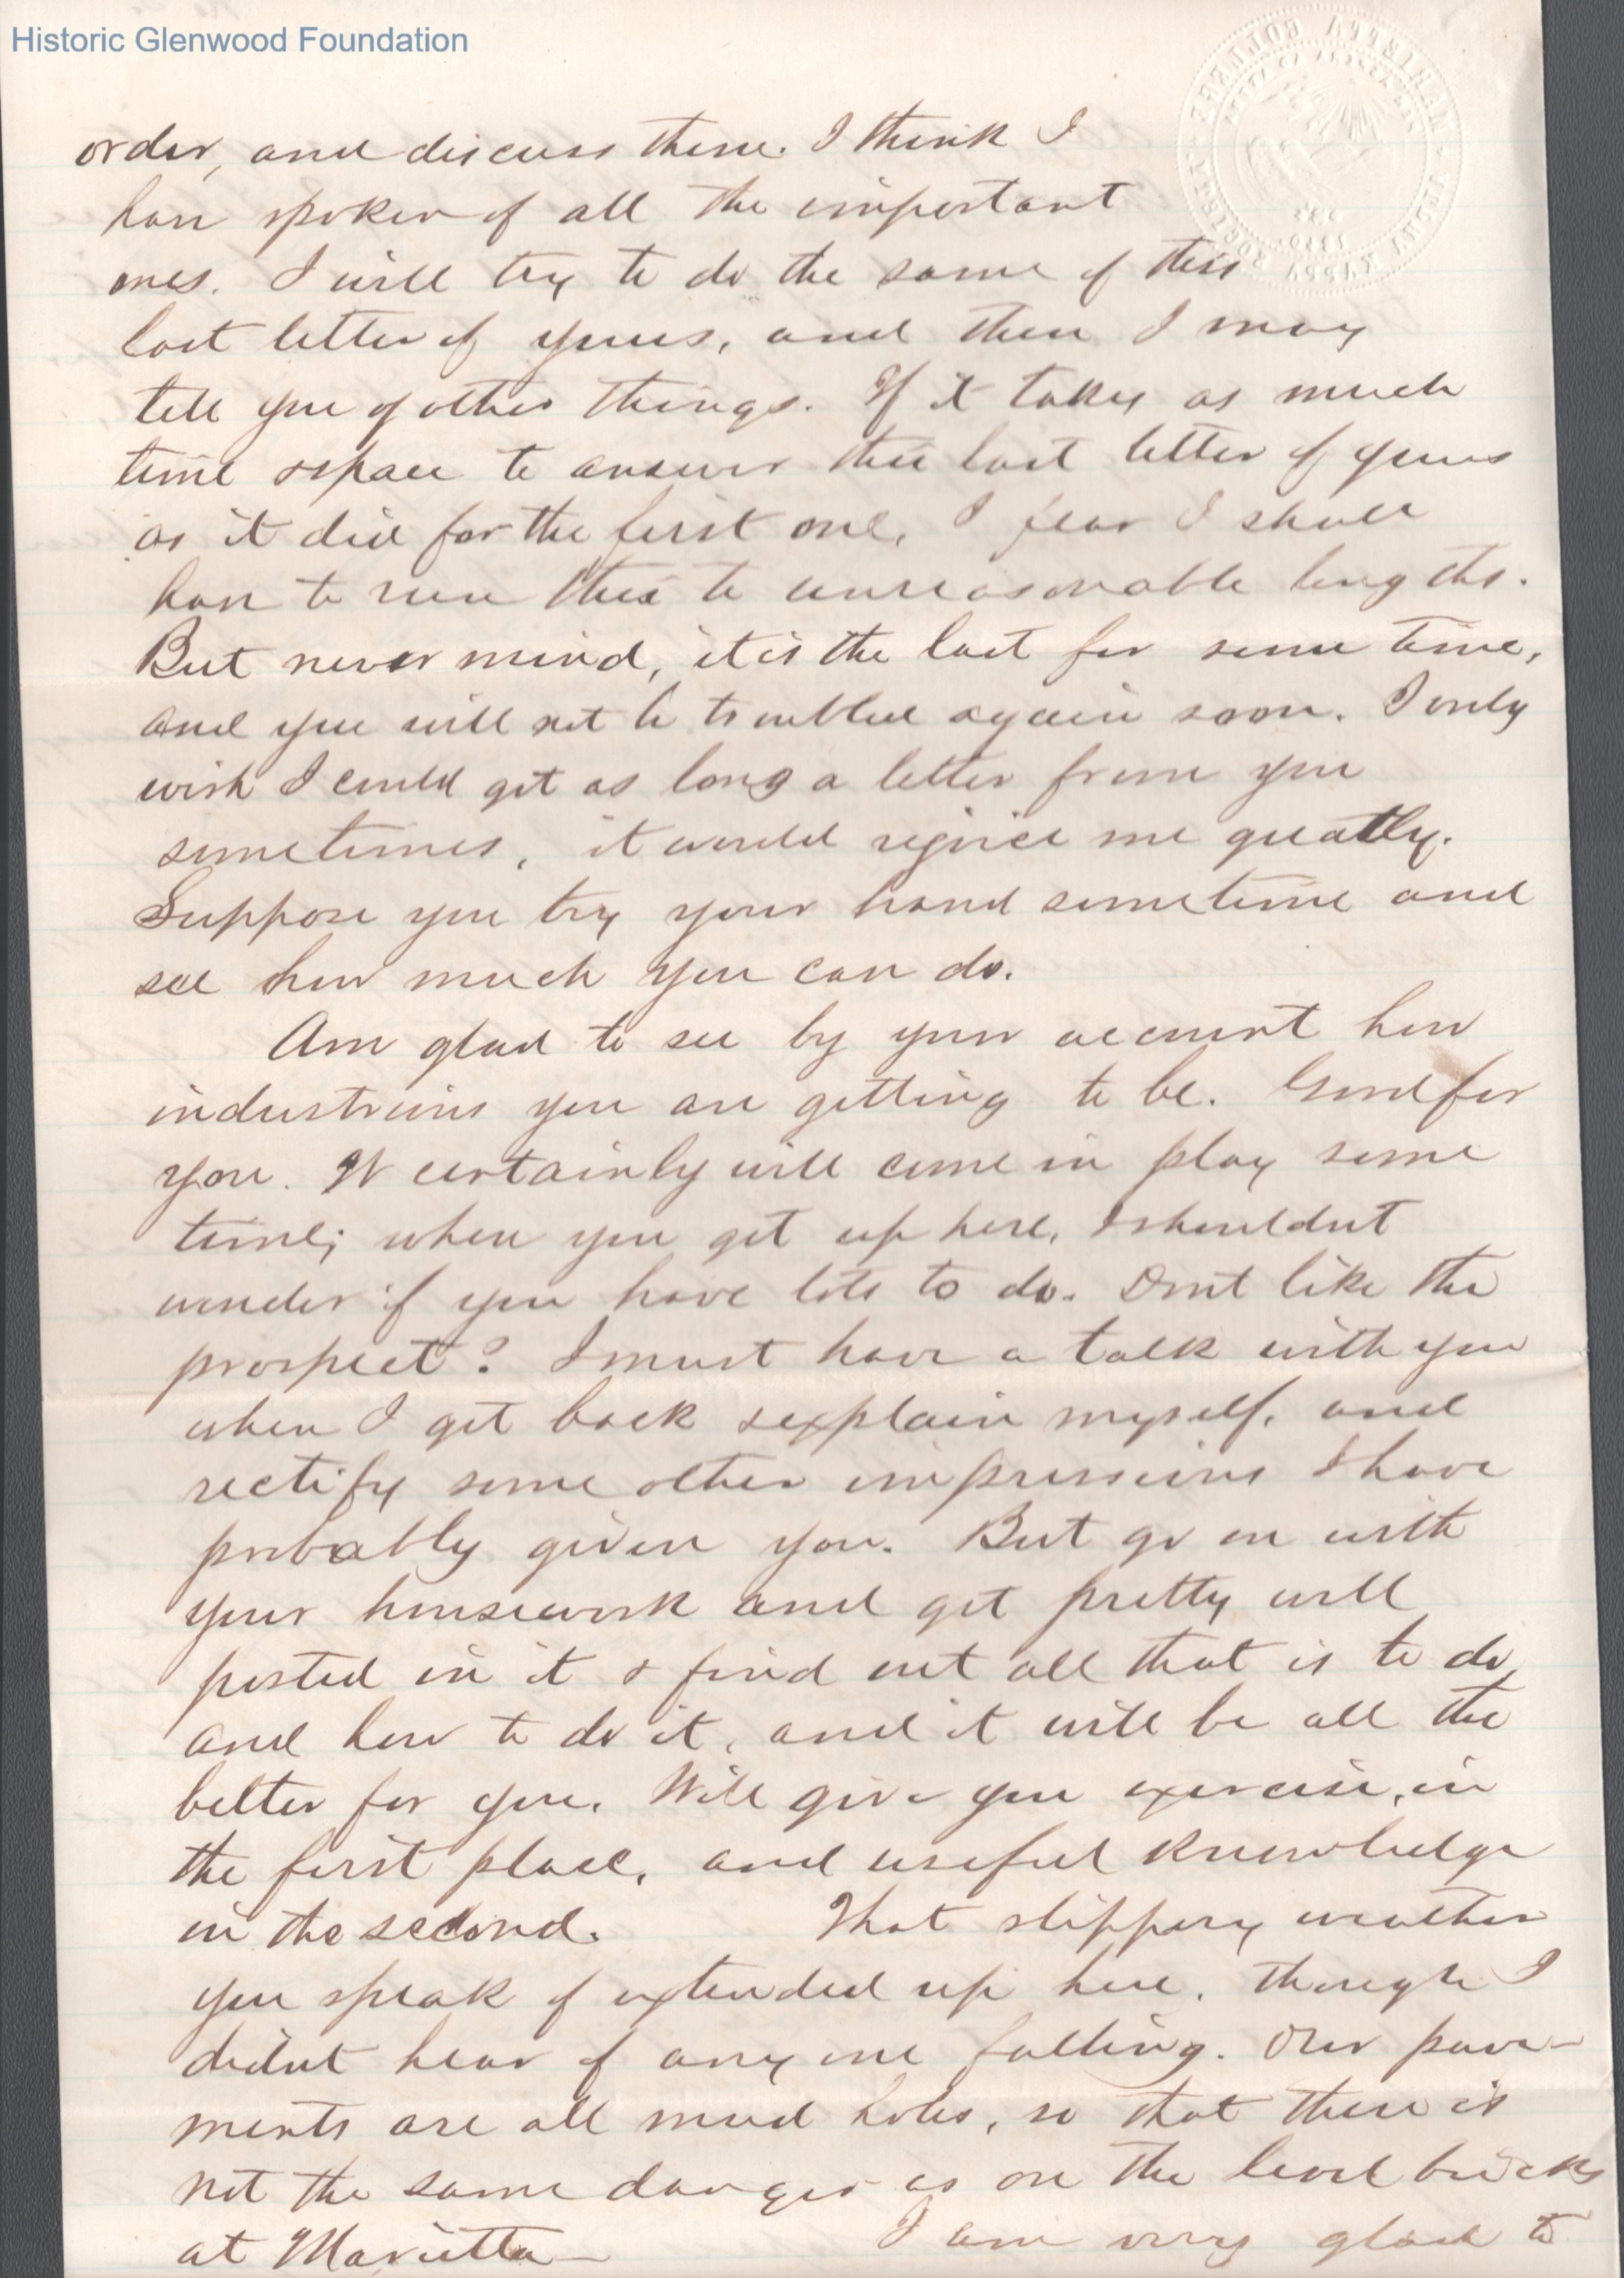 Historic Glenwood Foundation
order, and discuss them. I think I
have spoken of all the important
ones. I will try to do the same of this
last letter of yours, and then I may
tell you of other things. If it takes as much
time & space to answer this last letter of yours
as it did for the first one, I fear I shall
have to run this to unreasonable lengths.
But never mind, it is the last for some time,
and you will not be troubled again soon. I only
wish I could get as long a letter from you
sometimes, it would rejoice me greatly.
Suppose you try your hand sometime and
see how much you can do.
Am glad to see by your account how
industrious you are getting to be. Good for
you. It certainly will come in play some
time; when you get up here, I shouldnt
wonder if you have lots to do. Dont like the
prospect? I must have a talk with you
when I get back & explain myself, and
rectify some other impressions I have
probably given you. But go on with
your housework and get pretty well
posted in it & find out all that is to do,
and how to do it, and it will be all the
better for you. Will give you exercise, in
the first place, and useful knowledge
in the second. That slippery weather
you speak of extended up here, though I
didnt hear of any one falling. Our pave-
ments are all mud holes, so that there is
not the same danger as on the level bricks
at Marietta— I am very glad to